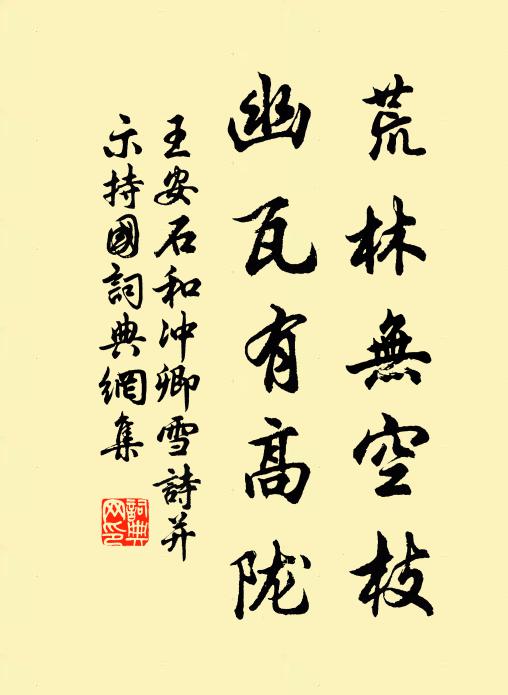 荒林無空枝
幽瓦有高陇
王安石和冲卿雪詩并
示持國詞典網集
詞典
网印